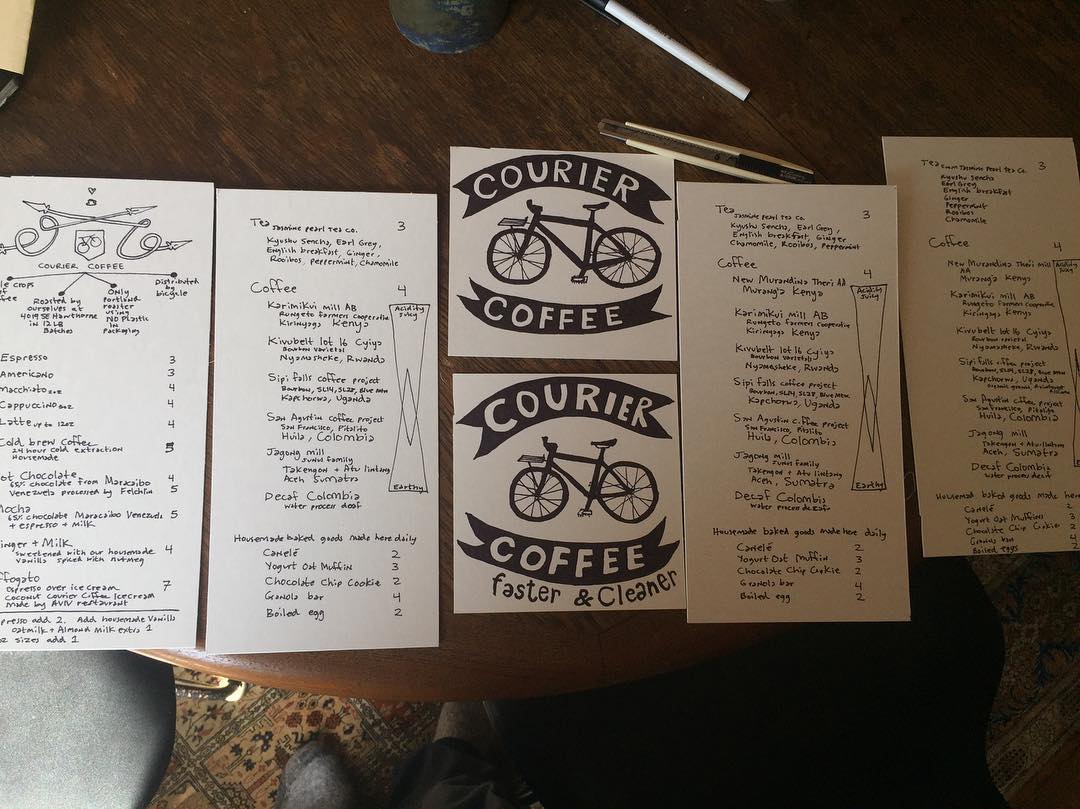 COURIER COFFEE
Distributed
by
bicycle
Only
Portland
roaster
using
NO Plastic
in
Packaging
Roasted by
ourselves at
4019 SE Hawthorne
in 12 LB
Batches
Espresso 3
Americano 3
Macchiato 2oz 4
Cappuccino 4
Latte up to 12oz 4
Cold brew coffee 5
24 hour cold extraction
Housemade
Hot Chocolate 4
65% chocolate from Maracaibo
Venezuela processed by Felchlin 5
Mocha
65% chocolate Maracaibo Venezuela 5
+ espresso + milk
Ginger + Milk
sweetened with our housemade 4
vanilla spiced with nutmeg
ffogato
espresso over ice cream 7
Coconut Courier Coffee Icecream
made by AVIV restaurant
presso add 2. Add housemade Vanilla
oatmilk + Almond milk extra 1
oz sizes add 1
Tea Jasmine Pearl Tea Co. 3
Kyushu Sencha, Earl Grey,
English breakfast, Ginger,
Rooibos, peppermint, Chamomile
Coffee 4
Acidity
Juicy
Karimikui mill AB
Rungeto farmers cooperative
Kirinyaga Kenya
Kivubelt lot 16 Cyiya
Bourbon varietal
Nyamasheke, Rwanda
Sipi falls coffee project
Bourbon, SL14, SL28, Blue Mtn.
Kapchorwa, Uganda
San Agustin coffee project
San Francisco, Pitalito
Huila, Colombia
Jagong mill
Junus family
Takengon + Atu lintang
Aceh, Sumatra
Earthy
Decaf Colombia
water process decaf
Housemade baked goods made here daily
Canelé 2
Yogurt Oat Muffin 3
Chocolate Chip Cookie 2
Granola bar 4
Boiled egg 2
COURIER
COFFEE
COURIER
COFFEE
faster & Cleaner
Tea Jasmine Pearl Tea Co. 3
Kyushu Sencha, Earl Grey,
English breakfast, Ginger
Chamomile, Rooibos, Peppermint
Coffee 4
New Murandina Theri AA
Murang'a Kenya
Acidity
Juicy
Karimikui mill AB
Rungeto farmers cooperative
Kirinyaga Kenya
Kivubelt lot 16 Cyiya
Bourbon varietal
Nyamasheke, Rwanda
Sipi falls coffee project
Bourbon, SL14, SL28, Blue Mtn.
Kapchorwa, Uganda
San Agustin coffee project
San Francisco, Pitalito
Huila, Colombia
Jagong mill
Junus family
Takengon + Atu lintang
Aceh, Sumatra
Earthy
Decaf Colombia
water process decaf
Housemade baked goods made here daily
Canelé 2
Yogurt Oat Muffin 3
Chocolate Chip Cookie 2
Granola bar 4
Boiled egg 2
Tea Jasmine Pearl Tea Co. 3
Kyushu Sencha
Earl Grey
English breakfast
Ginger
Peppermint
Rooibos
Chamomile
Coffee 4
New Murandina Theri mill
AA
Murang'a Kenya
Acidity
Juicy
Karimikui mill AB
Rungeto farmers cooperative
Kirinyaga Kenya
Kivubelt lot 16 Cyiya
Bourbon varietal
Nyamasheke, Rwanda
Sipi falls coffee project
Bourbon, SL14, SL28, Blue Mtn.
Kapchorwa, Uganda
San Agustin coffee project
San Francisco, Pitalito
Huila, Colombia
Jagong mill
Takengon + Atu lintang
Aceh, Sumatra
Decaf Colombia
water process decaf
Housemade baked goods made here
Canelé 2
Yogurt Oat Muffins 3
Chocolate Chip Cookie 2
Granola bar 4
Boiled eggs 2